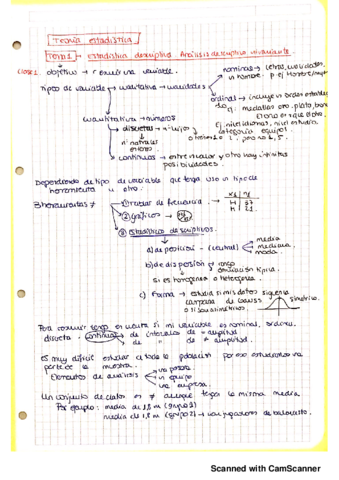 Teoría estadística
Tema 1 - estadística descriptiva. Análisis descriptivo univariante.
Clase 1. objetivo → resumir una variable.
nominal → letras, cualidades,
sin nombre. p ej Hombre/mujer
tipos de variable → cualitativa → cualidades
ordinal → incluye un orden
ej: medallas oro, plata, bronce
ej. nivel idiomas, nivel estudios,
cuantitativa → números
discretas →
nº naturales
enteros
continuas → entre un valor y otro hay infinitas
posibilidades.
Dependiendo de tipo de variable que tenga uso un tipo de
herramienta u otra.
3 herramientas ≠ → ① tablas de frecuencia. →
② gráficos →
③ estadísticos descriptivos.
a) de posición - (central) media
mediana
moda.
b) de dispersión rango
desviación típica.
si es homogénea o heterogénea.
c) Forma → estudia si mis datos siguen la
campana de Gauss simétrica.
o si son asimétricos.
Para resumir tengo en cuenta si mi variable es nominal, ordinal
discreta, continua de intervalos de = amplitud
de " de ≠ amplitud.
Es muy difícil estudiar a toda la población por eso estudiamos una
parte de la muestra.
Elementos de análisis una persona.
un equipo
una empresa.
Un conjunto de datos es ≠ aunque tengan la misma media.
Por ejemplo: media de 1,8 m (grupo 1)
media de 1,8 m (grupo 2) → son jugadores de baloncesto.
Scanned with CamScanner